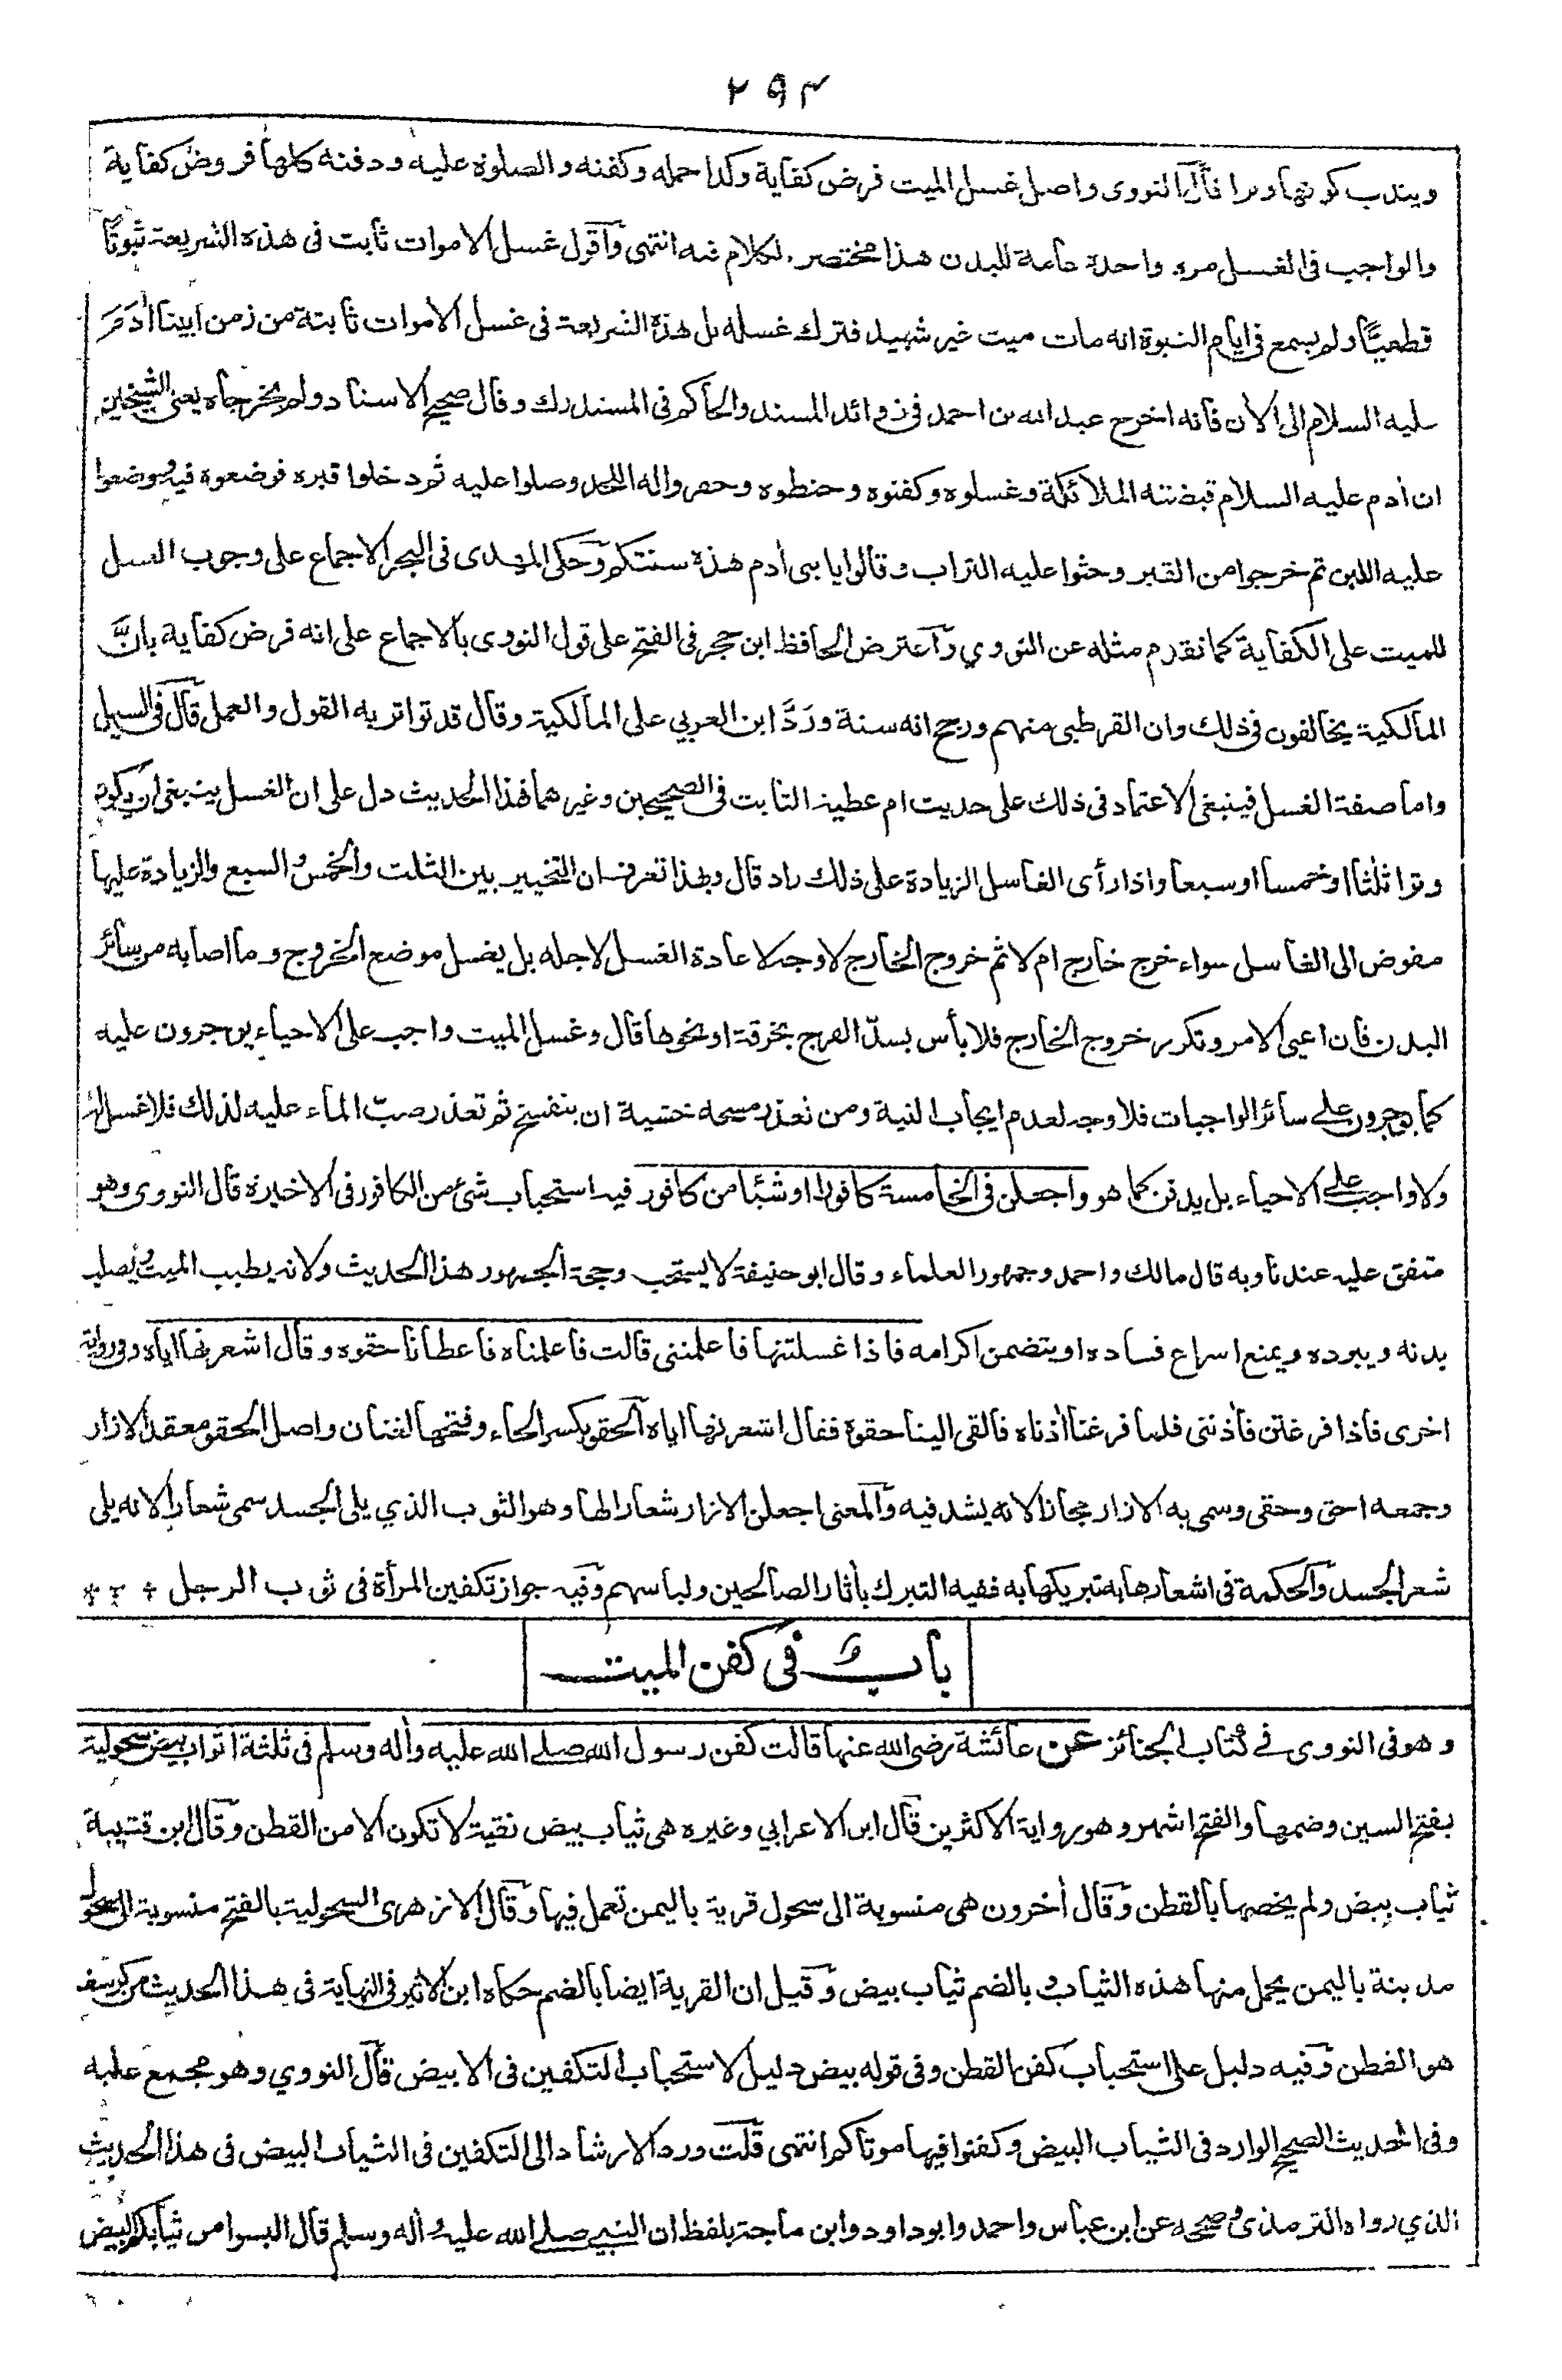 ٢٩٣
ويندب كونها وترا قال النووى واصل غسل الميت فرض كفاية وكذا حمله وكفنه والصلوة عليه ودفنه كلها فروض كفاية
والواجب فى الغسل مرة واحدة عامة للبدن هذا مختصر الكلام فيه انتهى وأقول غسل الاموات ثابت فى هذه الشريعة ثبوتًا
قطعيًّا ولم يسمع فى ايام النبوة انه مات ميت غير شهيد فترك غسله بل هذه الشريعة فى غسل الأموات ثابتة من زمن ابينا أدم
عليه السلام الى الأن فانه اخرج عبد الله بن احمد فى زوائد المسند والحاكم فى المستدرك وقال صحيح الاسناد ولم يخرجاه يعنى الشيخين
ان أدم عليه السلام قبضته الملائكة وغسلوه وكفنوه وحنطوه وحفروا له اللحد وصلوا عليه ثم دخلوا قبره فوضعوه فيه ووضعوا
عليه اللبن ثم خرجوا من القبر وحثوا عليه التراب وقالوا يا بنى أدم هذه سنتكم وحكى المهدى فى البحر الاجماع على وجوب الغسل
للميت على الكفاية كما تقدم مثله عن النووي وأعترض الحافظ ابن حجر فى الفتح على قول النووى بالاجماع على انه فرض كفاية بانَّ
المالكية يخالفون فى ذلك وان القرطبى منهم ورجح انه سنة وردَّ ابن العربي على المالكية وقال قد تواتر به القول والعمل قال فى السيل
واما صفة الغسل فينبغى الاعتماد فى ذلك على حديث ام عطية الثابت فى الصحيحين وغيرهما فهذا الحديث دل على ان الغسل ينبغى ان يكون
وترا ثلثا او خمسا او سبعا واذا رأى الغاسل الزيادة على ذلك زاد قال وبهذا تعرف ان التخيير بين الثلث والخمس والسبع والزيادة عليها
مفوض الى الغاسل سواء خرج خارج ام لا ثم خروج الخارج لا وجه لاعادة الغسل لاجله بل يغسل موضع الخروج وما اصابه من سائر
البدن فان اعيى الامر وتكرر خروج الخارج فلا بأس بسدّ الفرج بخرقة او نحوها قال وغسل الميت واجب على الاحياء يوجرون عليه
كما يوجرون على سائر الواجبات فلا وجه لعدم ايجاب النية ومن تعذر مسحه خشية ان يتفسخ ثم تعذر صبّ الماء عليه لذلك فلا غسل له
ولا واجب على الاحياء بل يدفن كما هو واجعلن فى الخامسة كافورا او شيئا من كافور فيه استحباب شئ من الكافور فى الاخيرة قال النووى وهو
متفق عليه عندنا وبه قال مالك واحمد وجمهور العلماء وقال ابو حنيفة لا يستحب وحجة الجمهور هذا الحديث ولانه يطيب الميت ويصلب
بدنه ويبرده ويمنع اسراع فساده او يتضمن اكرامه فاذا غسلتنها فاعلمننى قالت فاعلمناه فاعطانا حقوه وقال اشعرنها اياه وفى رواية
اخرى فاذا فرغتن فأذننى فلما فرغنا أذناه فالقى الينا حقوة فقال اشعرنها اياه الحقو بكسر الحاء وفتحها لغتان واصل الحقو معقد الازار
وجمعه احق وحقى وسمى به الازار مجازا لانه يشد فيه والمعنى اجعلن الازار شعارا لها وهو الثوب الذي يلى الجسد سمى شعارا لانه يلى
شعر الجسد والحكمة فى اشعارها به تبريكها به ففيه التبرك بأثار الصالحين ولباسهم وفيه جواز تكفين المرأة فى ثوب الرجل
باب فى كفن الميت
وهو فى النووى فى كتاب الجنائز عن عائشة رضى الله عنها قالت كفن رسول الله صلى الله عليه وأله وسلم فى ثلثة اثواب بيض سحولية
بفتح السين وضمها والفتح اشهر وهو رواية الاكثرين قال ابن الاعرابي وغيره هى ثياب بيض نقية لا تكون الا من القطن وقال ابن قتيبة
ثياب بيض ولم يخصها بالقطن وقال أخرون هى منسوبة الى سحول قرية باليمن تعمل فيها وقال الازهرى السحولية بالفتح منسوبة الى سحول
مدينة باليمن يحمل منها هذه الثياب وبالضم ثياب بيض وقيل ان القرية ايضا بالضم حكاه ابن الاثير فى النهاية فى هذا الحديث من كرسف
هو القطن وفيه دليل على استحباب كفن القطن وفى قوله بيض دليل لاستحباب التكفين فى الابيض قال النووي وهو مجمع عليه
وفى الحديث الصحيح الوارد فى الثياب البيض وكفنوا فيها موتاكم انتهى قلت ورد الارشاد الى التكفين فى الثياب البيض فى هذا الحديث
الذي رواه الترمذى وصححه عن ابن عباس واحمد وابو داود وابن ماجة بلفظ ان النبى صلى الله عليه وأله وسلم قال البسوا من ثيابكم البيض